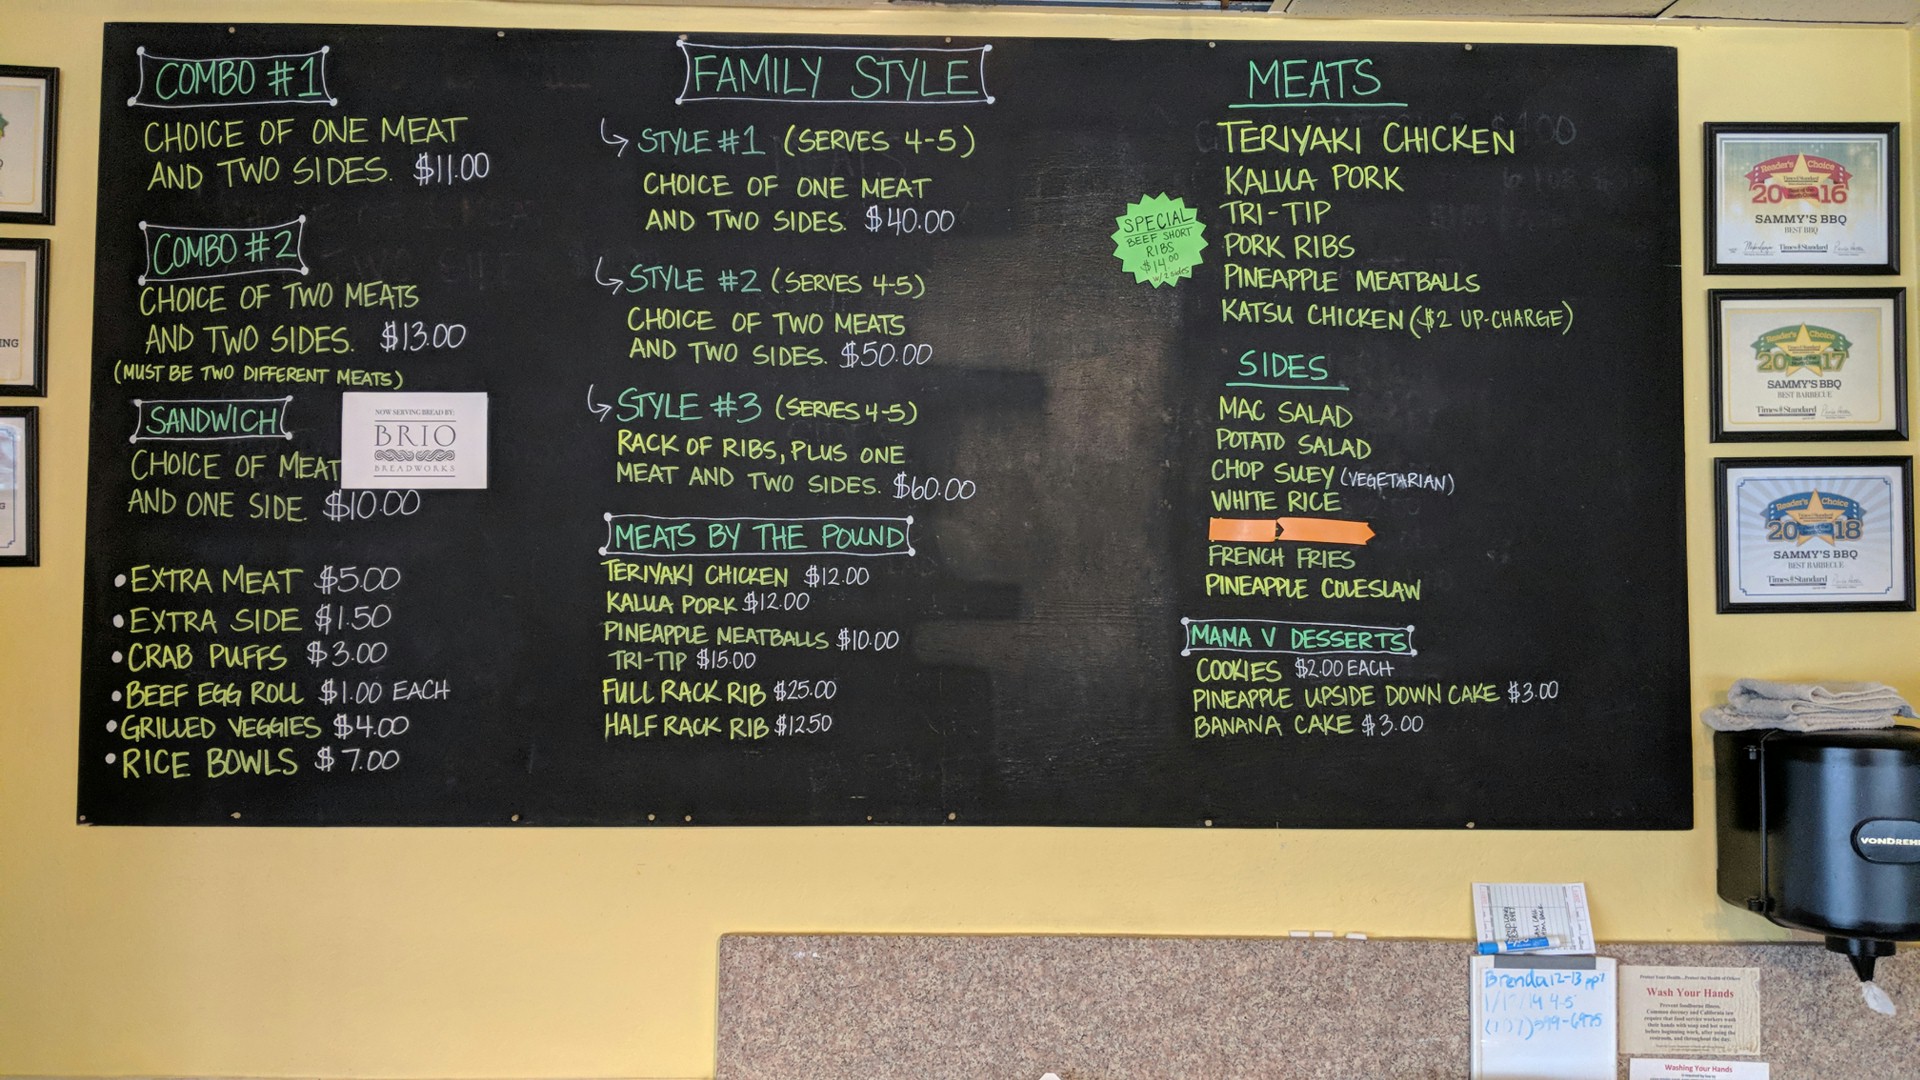 COMBO #1
CHOICE OF ONE MEAT
AND TWO SIDES. $11.00
COMBO #2
CHOICE OF TWO MEATS
AND TWO SIDES. $13.00
(MUST BE TWO DIFFERENT MEATS)
SANDWICH
CHOICE OF MEAT
AND ONE SIDE. $10.00
NOW SERVING BREAD BY:
BRIO
BREADWORKS
• EXTRA MEAT $5.00
• EXTRA SIDE $1.50
• CRAB PUFFS $3.00
• BEEF EGG ROLL $1.00 EACH
• GRILLED VEGGIES $4.00
• RICE BOWLS $7.00
FAMILY STYLE
STYLE #1 (SERVES 4-5)
CHOICE OF ONE MEAT
AND TWO SIDES. $40.00
STYLE #2 (SERVES 4-5)
CHOICE OF TWO MEATS
AND TWO SIDES. $50.00
STYLE #3 (SERVES 4-5)
RACK OF RIBS, PLUS ONE
MEAT AND TWO SIDES. $60.00
MEATS BY THE POUND
TERIYAKI CHICKEN $12.00
KALUA PORK $12.00
PINEAPPLE MEATBALLS $10.00
TRI-TIP $15.00
FULL RACK RIB $25.00
HALF RACK RIB $12.50
SPECIAL
BEEF SHORT
RIBS
$14.00
w/ 2 sides
MEATS
TERIYAKI CHICKEN
KALUA PORK
TRI-TIP
PORK RIBS
PINEAPPLE MEATBALLS
KATSU CHICKEN ($2 UP-CHARGE)
SIDES
MAC SALAD
POTATO SALAD
CHOP SUEY (VEGETARIAN)
WHITE RICE
FRENCH FRIES
PINEAPPLE COLESLAW
MAMA V DESSERTS
COOKIES $2.00 EACH
PINEAPPLE UPSIDE DOWN CAKE $3.00
BANANA CAKE $3.00
Reader's Choice
2016
SAMMY'S BBQ
BEST BBQ
Times-Standard
Reader's Choice
2017
SAMMY'S BBQ
BEST BARBECUE
Times-Standard
Reader's Choice
2018
SAMMY'S BBQ
BEST BARBECUE
Times-Standard
ING
VONDREH
Brenda 12-13 ppl
Protect Your Health... Protect the Health of Others
Wash Your Hands
Prevent foodborne illness.
Common decency and California law
require that food service workers wash
their hands with soap and hot water
before beginning work, after using the
restroom, and throughout the day.
Washing Your Hands